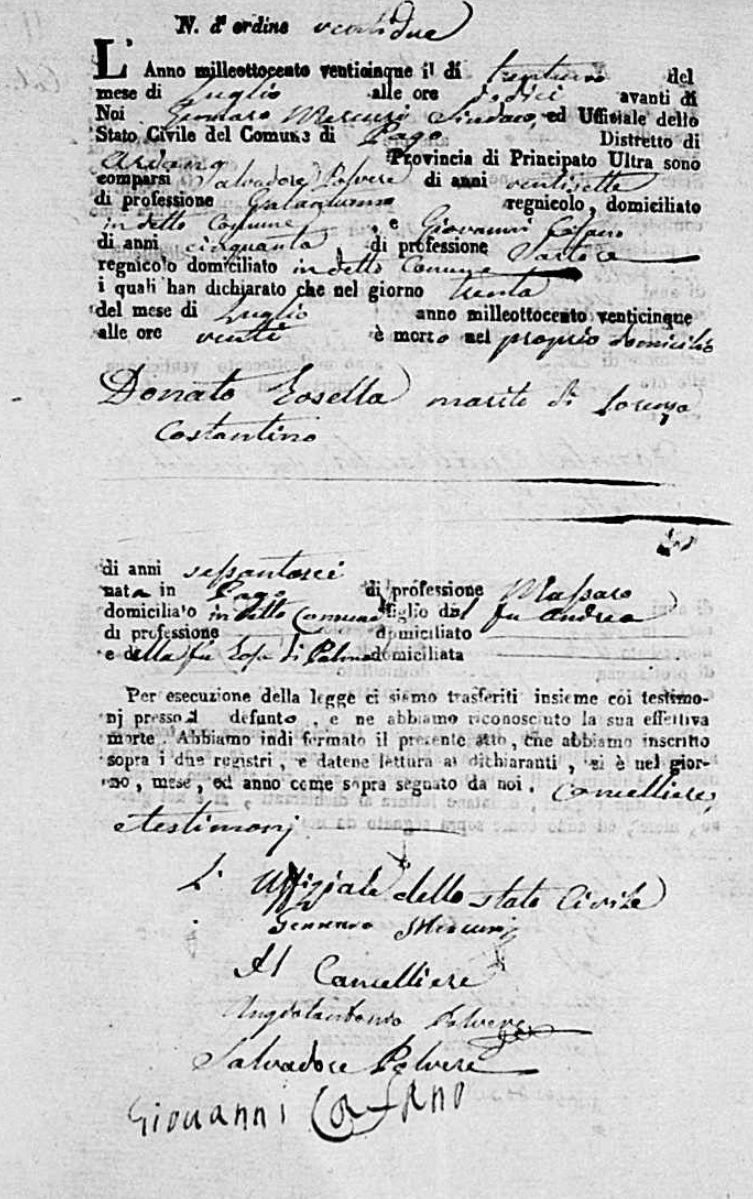 N. d'ordine ventidue
L' Anno milleottocento venticinque il di trentuno del
mese di Luglio alle ore dodici avanti di
Noi Gennaro Mercurj Sindaco, ed Uffiziale dello
Stato Civile del Comune di Pago Distretto di
Ariano Provincia di Principato Ultra sono
comparsi Salvadore Polvere di anni ventisette
di professione Galantuomo regnicolo, domiciliato
in detto Comune, e Giovanni
di anni cinquanta, di professione Sartore
regnicolo domiciliato in detto Comune
i quali han dichiarato che nel giorno trenta
del mese di Luglio anno milleottocento venticinque
alle ore venti è morto nel proprio domicilio
Donato marito di Lorenza
Costantino
di anni sessantasei
nata in Pago di professione Massaro
domiciliato in detto Comune figlio del fu Andrea
di professione domiciliato
e della fu di Palma domiciliata
Per esecuzione della legge ci siamo trasferiti insieme coi testimo-
nj presso il defunto, e ne abbiamo riconosciuto la sua effettiva
morte. Abbiamo indi formato il presente atto, che abbiamo inscritto
sopra i due registri, e datene lettura ai dichiaranti, si è nel gior-
no, mese, ed anno come sopra segnato da noi. Cancelliere,
e testimonj
L' Uffiziale dello stato Civile
Gennaro Mercurj
Il Cancelliere
Angelantonio Polvere
Salvadore Polvere
Giovanni